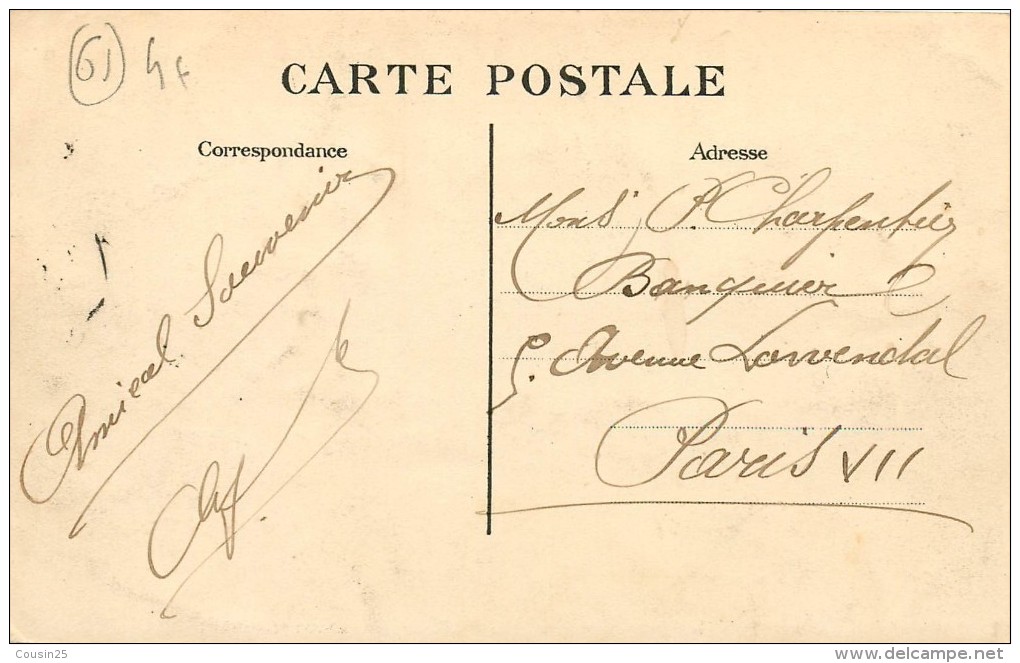 61 4f
CARTE POSTALE
Correspondance
Adresse
Amical Souvenir
Mons. P. Charpentier
Banquier
5. Avenue Lowendal
Paris VII
Cousin25
www.delcampe.net